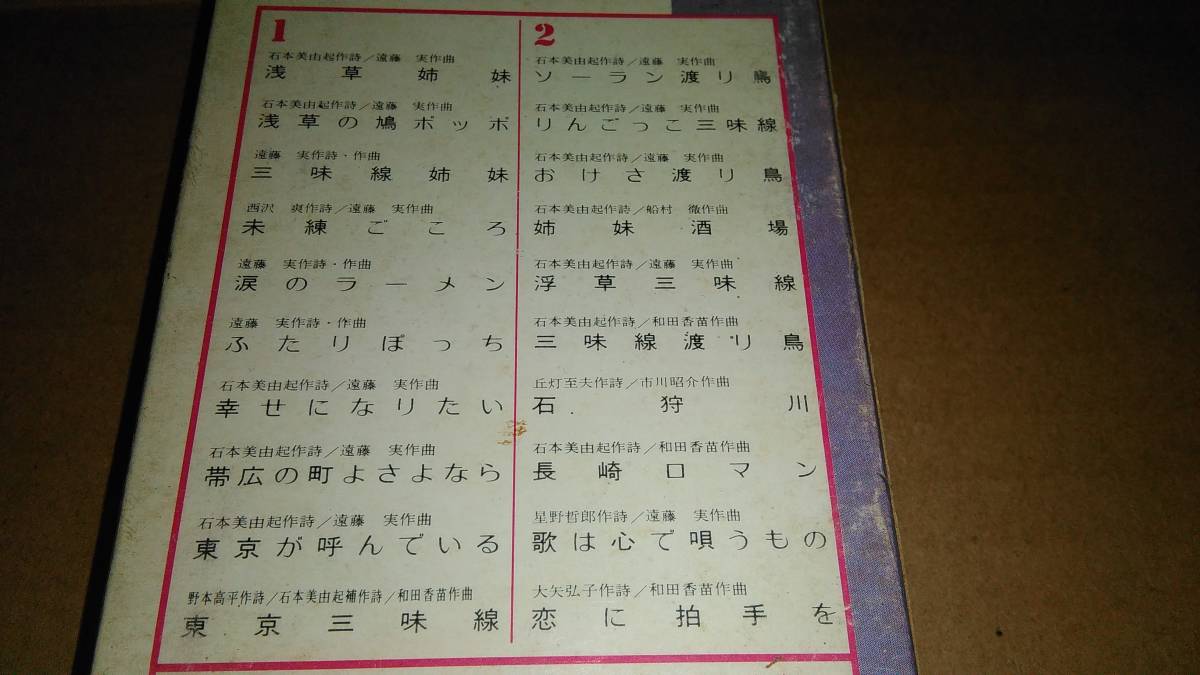 1
石本美由起作詩／遠藤　実作曲
浅草姉妹
石本美由起作詩／遠藤　実作曲
浅草の鳩ポッポ
遠藤　実作詩・作曲
三味線姉妹
西沢　爽作詩／遠藤　実作曲
未練ごころ
遠藤　実作詩・作曲
涙のラーメン
遠藤　実作詩・作曲
ふたりぽっち
石本美由起作詩／遠藤　実作曲
幸せになりたい
石本美由起作詩／遠藤　実作曲
帯広の町よさよなら
石本美由起作詩／遠藤　実作曲
東京が呼んでいる
野本高平作詩／石本美由起補作詩／和田香苗作曲
東京三味線
2
石本美由起作詩／遠藤　実作曲
ソーラン渡り鳥
石本美由起作詩／遠藤　実作曲
りんごっこ三味線
石本美由起作詩／遠藤　実作曲
おけさ渡り鳥
石本美由起作詩／船村　徹作曲
姉妹酒場
石本美由起作詩／遠藤　実作曲
浮草三味線
石本美由起作詩／和田香苗作曲
三味線渡り鳥
丘灯至夫作詩／市川昭介作曲
石狩川
石本美由起作詩／和田香苗作曲
長崎ロマン
星野哲郎作詩／遠藤　実作曲
歌は心で唄うもの
大矢弘子作詩／和田香苗作曲
恋に拍手を